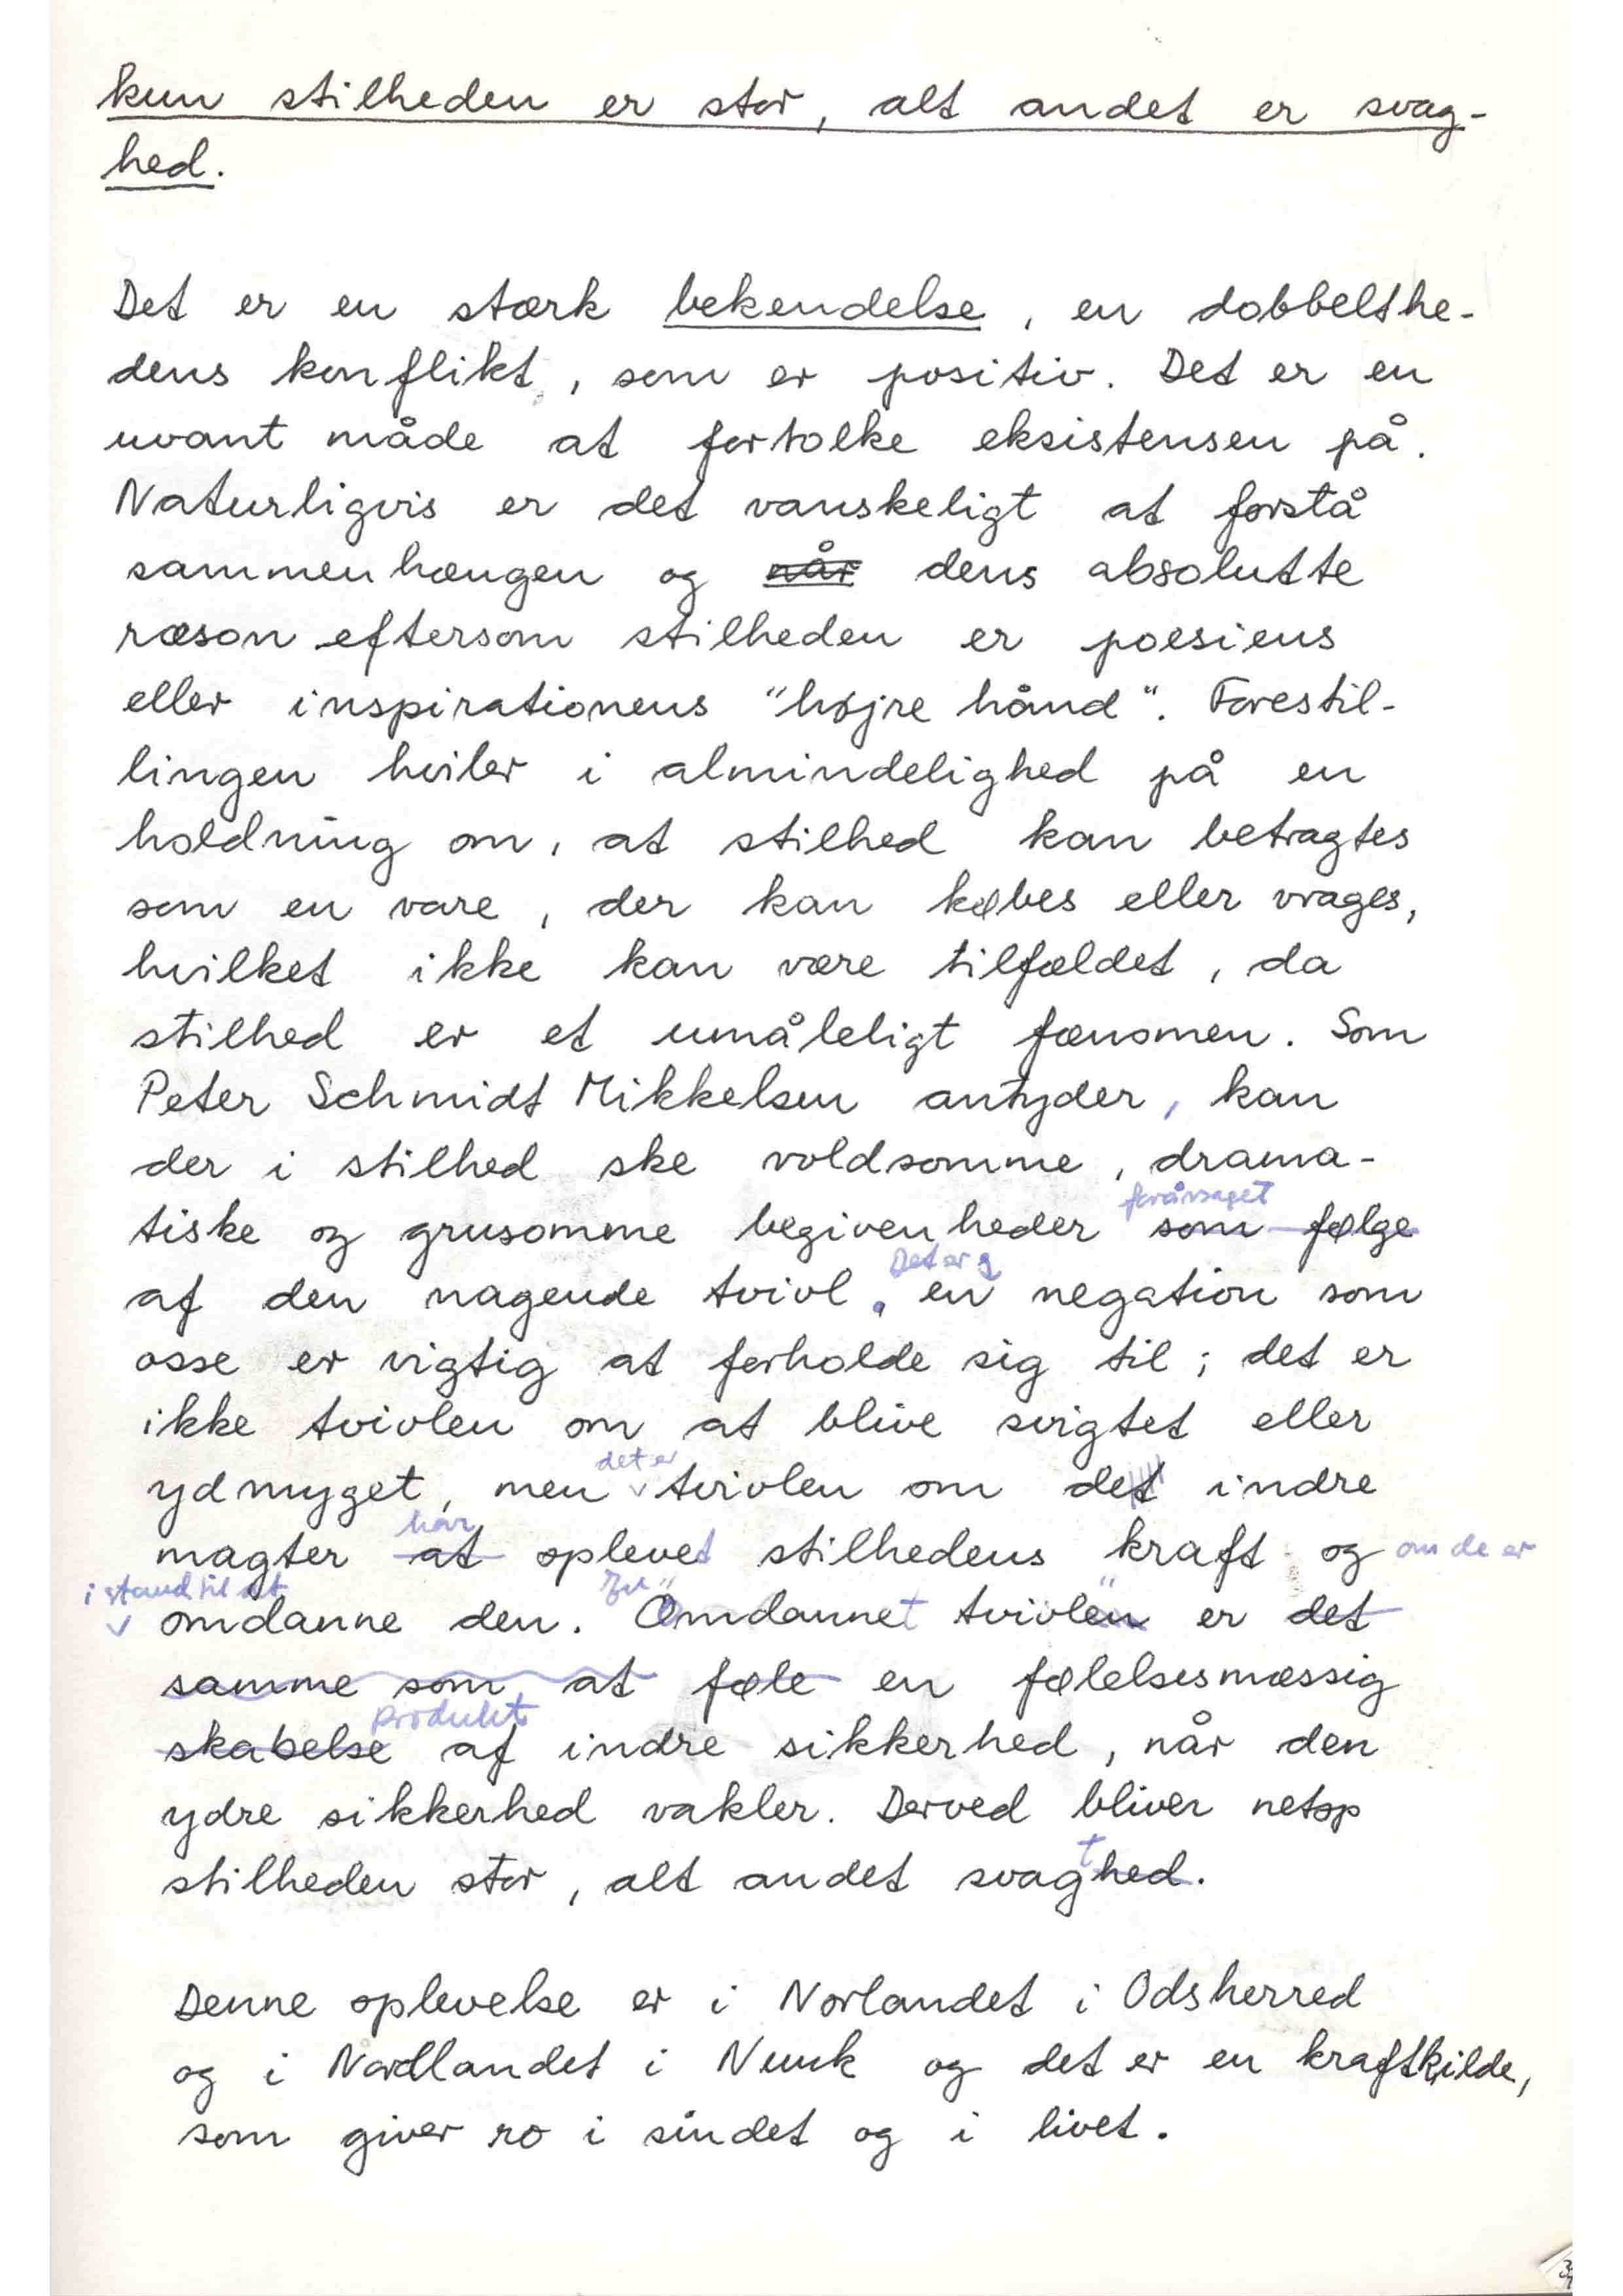 kun stilheden er stor, alt andet er svag-
hed.
Det er en stærk bekendelse, en dobbelthe-
dens konflikt, som er positiv. Det er en
uvant måde at fortolke eksistensen på.
Naturligvis er det vanskeligt at forstå
sammenhængen og når dens absolutte
ræson eftersom stilheden er poesiens
eller inspirationens "højre hånd". Forestil-
lingen hviler i almindelighed på en
holdning om, at stilhed kan betragtes
som en vare, der kan købes eller vrages,
hvilket ikke kan være tilfældet, da
stilhed er et umåleligt fænomen. Som
Peter Schmidt Mikkelsen antyder, kan
der i stilhed ske voldsomme, drama-
forårsaget
tiske og grusomme begivenheder som følge
Det er
af den nagende tvivl. en negation som
osse er vigtig at forholde sig til; det er
ikke tvivlen om at blive svigtet eller
det er
ydmyget, men tvivlen om det indre
har
magter at oplevet stilhedens kraft og om de er
i stand til at
omdanne den. En "Omdannet tvivlen" er det
samme som at føle en følelsesmæssig
produkt
skabelse af indre sikkerhed, når den
ydre sikkerhed vakler. Derved bliver netop
t
stilheden stor, alt andet svaghed.
Denne oplevelse er i Norlandet i Odsherred
og i Nordlandet i Nuuk og det er en kraftkilde,
som giver ro i sindet og i livet.